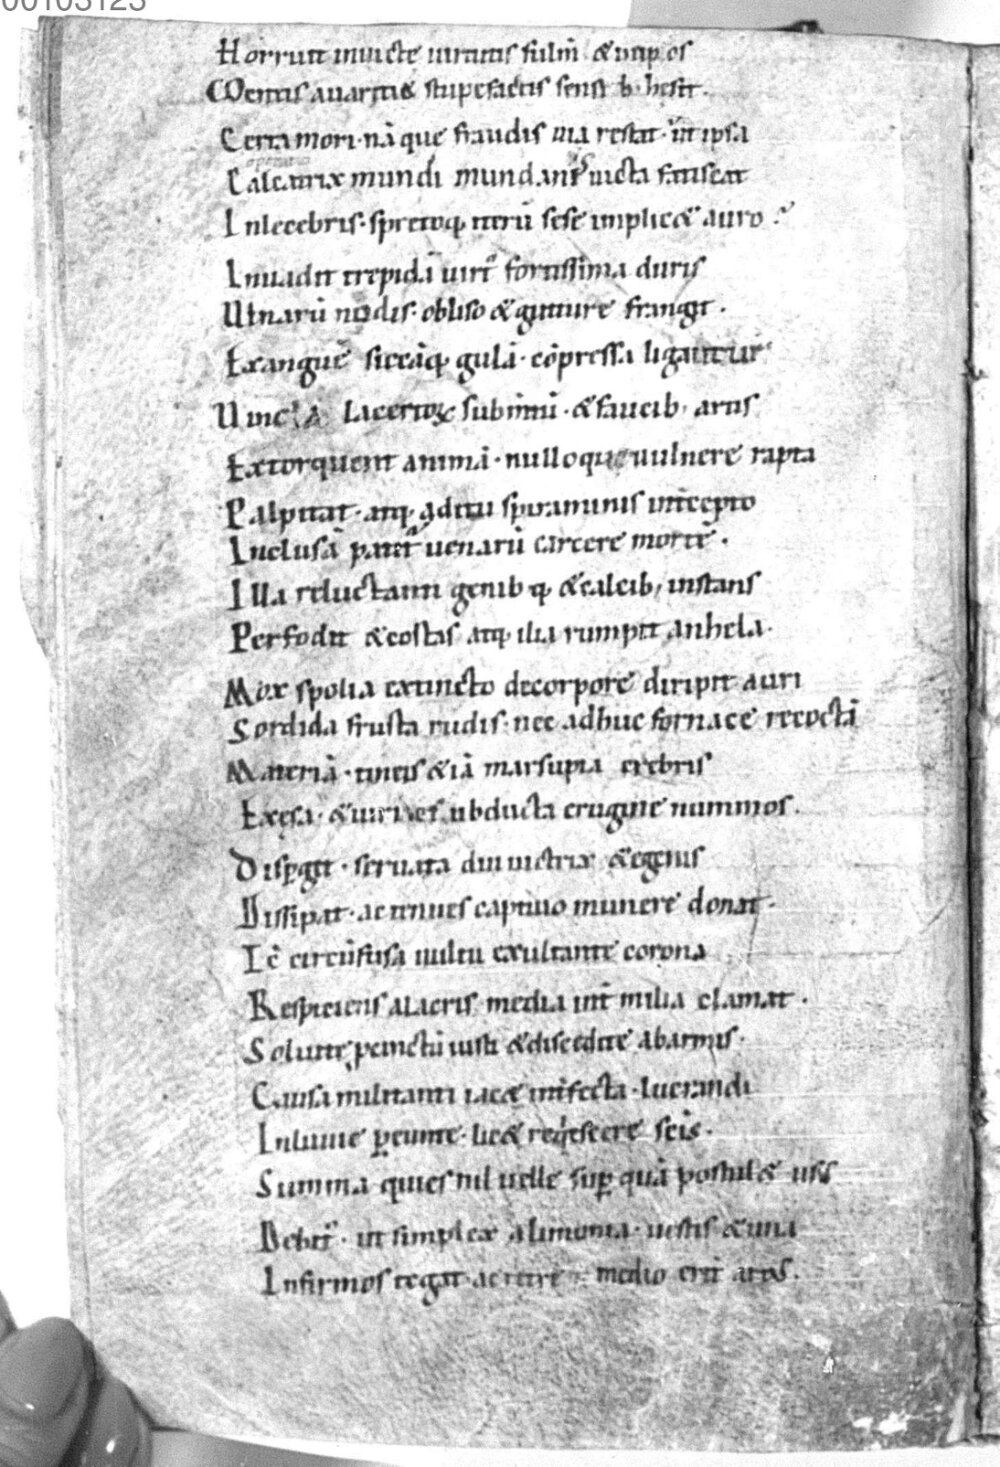 00103123
Horruit inuictę uirtutis fulm̄ & impos
Mentis auaritię stupefactis sensib; hesit.
Certa mori. nā que fraudis uia restat. ut ipsa
Calcatrix mundi mundanis uicta fatiscat
Inlecebris. spretoq; iterū sese implic& auro?
Inuadit trepidā uirt fortissima duris
Ulnarū nodis. obliso & gutture frangit.
Exanguē siccāq; gulā. cōpressa ligantur
Uincla lacertorum sub mentū. & faucib; artis
Extorquent animā. nulloque uulnere rapta
Palpitat. atq; aditu spiraminis int̄cepto
Inclusā patit uenarū carcere mortē.
Illa reluctanti genibq; & calcib; instans
Perfodit & costas atq; ilia rumpit anhela.
Mox spolia extincto decorpore diripit auri
Sordida frusta rudis. nec adhuc fornace recoctā
Materiā. tineis & iā marsupia crebris
Exęsa. & uirides ubducta erugine nummos.
Disꝑgit. seruata diu uictrix & egenis
Dissipat. ac tenues captiuo munere donat.
Tc̄ circūfusa uultu exultante corona
Respiciens alacris media int̄ milia clamat.
Soluite pectū iusti & discedite abarmis.
Causa mali tanti iac& int̄fecta. lucrandi
Inluuie ꝑeunte. lic& reqiescere sc̄is.
Summa quies nil uelle suꝑ quā postul& usus
Debit. ut simplex alimonia. uestis & una
Infirmos tegat ac recreet medio crit artus.